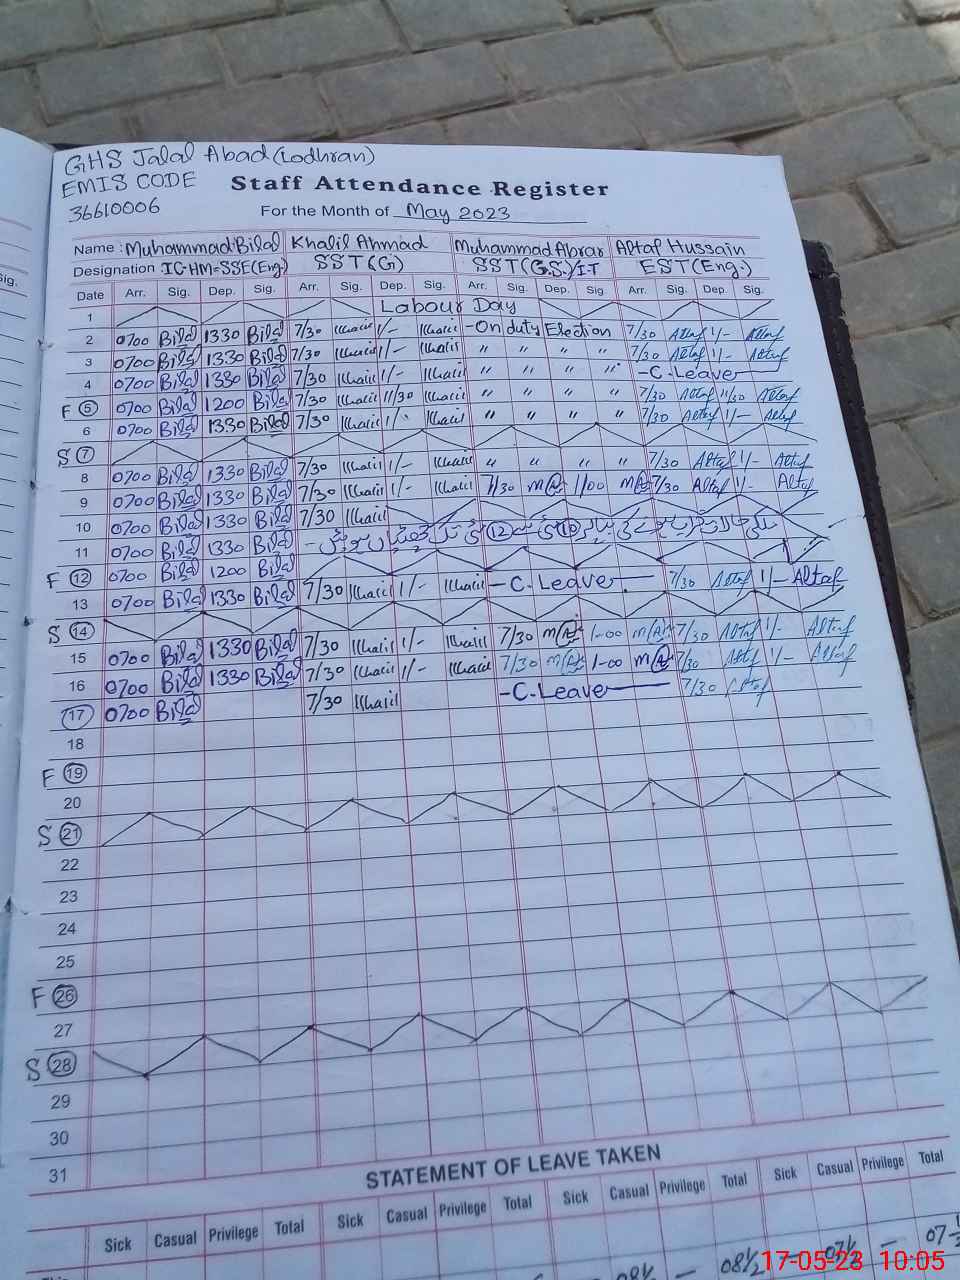 GHS Jalal Abad (Lodhran)
EMIS CODE
36610006
Staff Attendance Register
For the Month of May 2023
Name : Muhammad Bilal Khalil Ahmad Muhammad Abrar Altaf Hussain
Designation IC-HM=SSE(Eng.) SST(G) SST(G.S.)/IT EST(Eng.)
Sig.
Date Arr. Sig. Dep. Sig. Arr. Sig. Dep. Sig. Arr. Sig. Dep. Sig. Arr. Sig. Dep. Sig.
1 Labour Day
2 0700 Bilal 1330 Bilal 7/30 Khalil 1/- Khalil -On duty Election 7/30 Altaf 1/- Altaf
3 0700 Bilal 1330 Bilal 7/30 Khalil 1/- Khalil " " " " 7/30 Altaf 1/- Altaf
4 0700 Bilal 1330 Bilal 7/30 Khalil 1/- Khalil " " " " -C.Leave-
F 5 0700 Bilal 1200 Bilal 7/30 Khalil 11/30 Khalil " " " " 7/30 Altaf 11/30 Altaf
6 0700 Bilal 1330 Bilal 7/30 Khalil 1/- Khalil " " " " 7/30 Altaf 1/- Altaf
S 7
8 0700 Bilal 1330 Bilal 7/30 Khalil 1/- Khalil " " " " 7/30 Altaf 1/- Altaf
9 0700 Bilal 1330 Bilal 7/30 Khalil 1/- Khalil 7/30 1/00 7/30 Altaf 1/- Altaf
10 0700 Bilal 1330 Bilal 7/30 Khalil
11 0700 Bilal 1330 Bilal ملکی حالات 10 مئی سے 12 مئی تک چھٹیاں ہوئیں -
F 12 0700 Bilal 1200 Bilal
13 0700 Bilal 1330 Bilal 7/30 Khalil 1/- Khalil -C.Leave- 7/30 Altaf 1/- Altaf
S 14
15 0700 Bilal 1330 Bilal 7/30 Khalil 1/- Khalil 7/30 1-00 7/30 Altaf 1/- Altaf
16 0700 Bilal 1330 Bilal 7/30 Khalil 1/- Khalil 7/30 1-00 7/30 Altaf 1/- Altaf
17 0700 Bilal 7/30 Khalil -C.Leave- 7/30 Altaf
18
F 19
20
S 21
22
23
24
25
F 26
27
S 28
29
30
31
STATEMENT OF LEAVE TAKEN
Sick Casual Privilege Total Sick Casual Privilege Total Sick Casual Privilege Total Sick Casual Privilege Total
08½ - 08½ - 07½ - 07-½
17-05-23 10:05